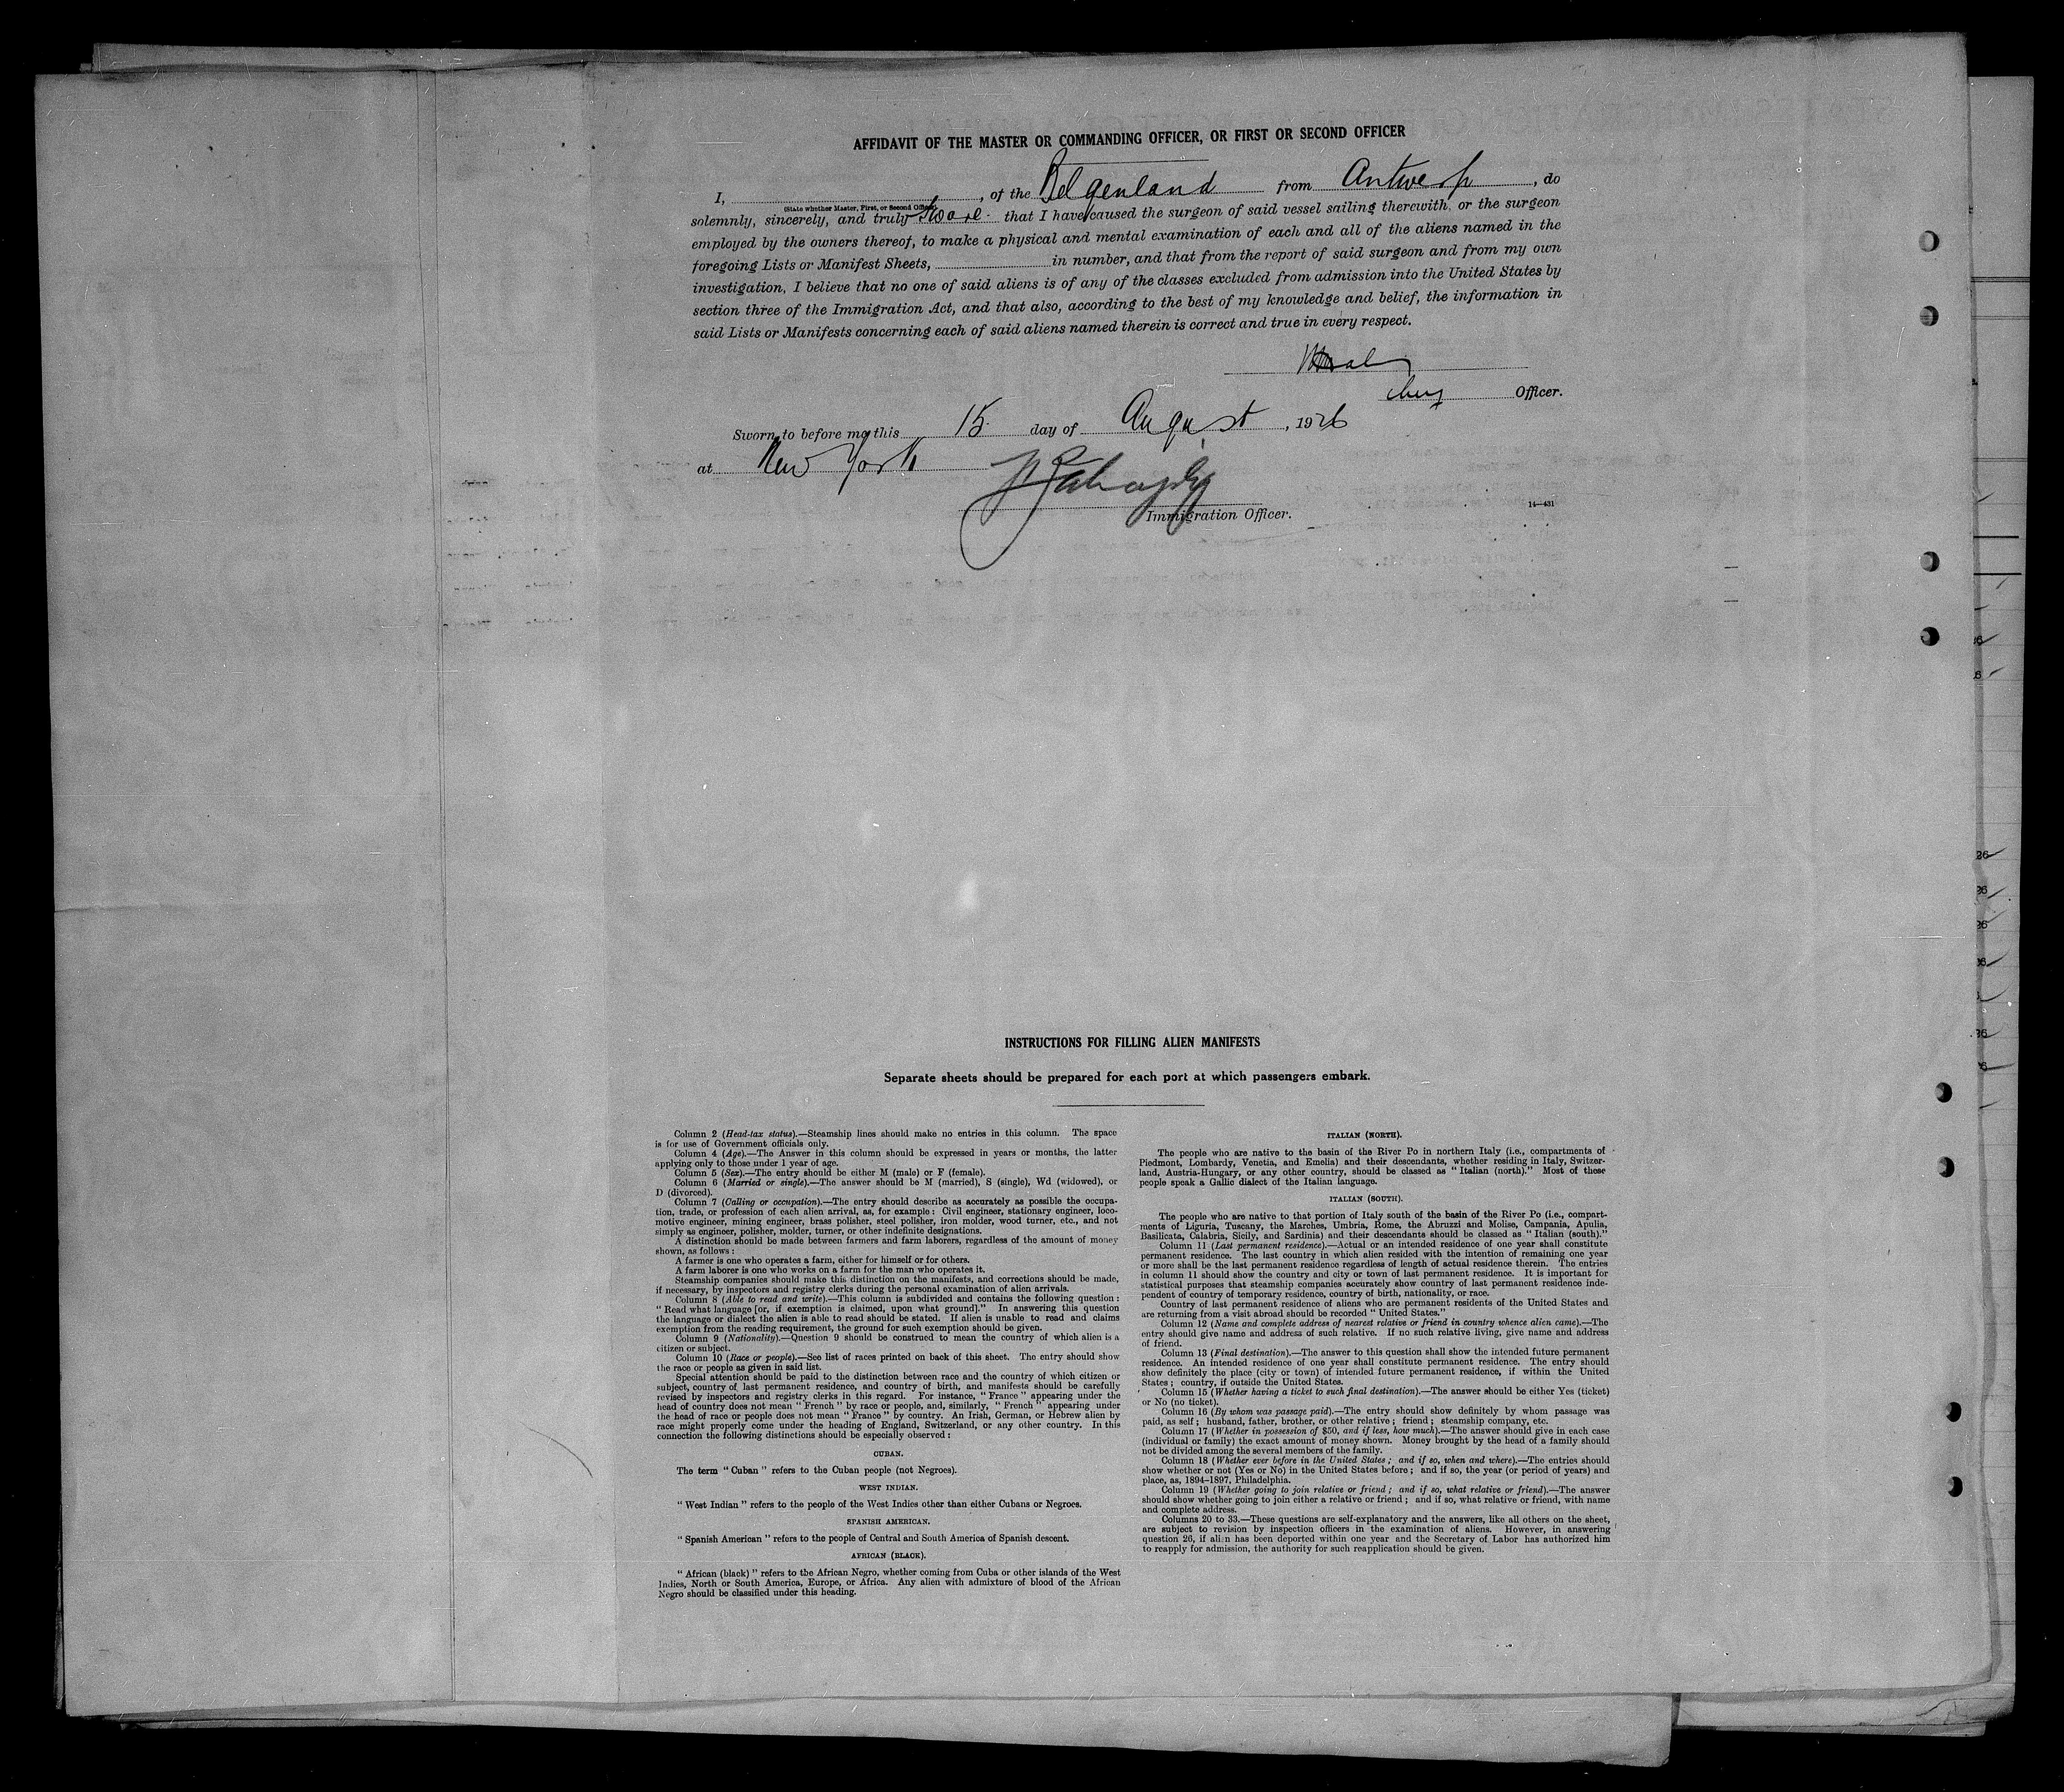 AFFIDAVIT OF THE MASTER OR COMMANDING OFFICER, OR FIRST OR SECOND OFFICER
I, , of the Belgenland from Antwerp , do
(State whether Master, First, or Second Officer)
solemnly, sincerely, and truly that I have caused the surgeon of said vessel sailing therewith, or the surgeon
employed by the owners thereof, to make a physical and mental examination of each and all of the aliens named in the
foregoing Lists or Manifest Sheets, in number, and that from the report of said surgeon and from my own
investigation, I believe that no one of said aliens is of any of the classes excluded from admission into the United States by
section three of the Immigration Act, and that also, according to the best of my knowledge and belief, the information in
said Lists or Manifests concerning each of said aliens named therein is correct and true in every respect.
Officer.
Sworn to before me this 15 day of August , 1926
at New York
Immigration Officer.
14—431
INSTRUCTIONS FOR FILLING ALIEN MANIFESTS
Separate sheets should be prepared for each port at which passengers embark.
Column 2 (Head-tax status).—Steamship lines should make no entries in this column. The space
is for use of Government officials only.
Column 4 (Age).—The Answer in this column should be expressed in years or months, the latter
applying only to those under 1 year of age.
Column 5 (Sex).—The entry should be either M (male) or F (female).
Column 6 (Married or single).—The answer should be M (married), S (single), Wd (widowed), or
D (divorced).
Column 7 (Calling or occupation).—The entry should describe as accurately as possible the occupa-
tion, trade, or profession of each alien arrival, as, for example: Civil engineer, stationary engineer, loco-
motive engineer, mining engineer, brass polisher, steel polisher, iron molder, wood turner, etc., and not
simply as engineer, polisher, molder, turner, or other indefinite designations.
A distinction should be made between farmers and farm laborers, regardless of the amount of money
shown, as follows:
A farmer is one who operates a farm, either for himself or for others.
A farm laborer is one who works on a farm for the man who operates it.
Steamship companies should make this distinction on the manifests, and corrections should be made,
if necessary, by inspectors and registry clerks during the personal examination of alien arrivals.
Column 8 (Able to read and write).—This column is subdivided and contains the following question:
"Read what language [or, if exemption is claimed, upon what ground]." In answering this question
the language or dialect the alien is able to read should be stated. If alien is unable to read and claims
exemption from the reading requirement, the ground for such exemption should be given.
Column 9 (Nationality).—Question 9 should be construed to mean the country of which alien is a
citizen or subject.
Column 10 (Race or people).—See list of races printed on back of this sheet. The entry should show
the race or people as given in said list.
Special attention should be paid to the distinction between race and the country of which citizen or
subject, country of last permanent residence, and country of birth, and manifests should be carefully
revised by inspectors and registry clerks in this regard. For instance, "France" appearing under the
head of country does not mean "French" by race or people, and, similarly, "French" appearing under
the head of race or people does not mean "France" by country. An Irish, German, or Hebrew alien by
race might properly come under the heading of England, Switzerland, or any other country. In this
connection the following distinctions should be especially observed:
CUBAN.
The term "Cuban" refers to the Cuban people (not Negroes).
WEST INDIAN.
"West Indian" refers to the people of the West Indies other than either Cubans or Negroes.
SPANISH AMERICAN.
"Spanish American" refers to the people of Central and South America of Spanish descent.
AFRICAN (BLACK).
"African (black)" refers to the African Negro, whether coming from Cuba or other islands of the West
Indies, North or South America, Europe, or Africa. Any alien with admixture of blood of the African
Negro should be classified under this heading.
ITALIAN (NORTH).
The people who are native to the basin of the River Po in northern Italy (i.e., compartments of
Piedmont, Lombardy, Venetia, and Emelia) and their descendants, whether residing in Italy, Switzer-
land, Austria-Hungary, or any other country, should be classed as "Italian (north)." Most of these
people speak a Gallic dialect of the Italian language.
ITALIAN (SOUTH).
The people who are native to that portion of Italy south of the basin of the River Po (i.e., compart-
ments of Liguria, Tuscany, the Marches, Umbria, Rome, the Abruzzi and Molise, Campania, Apulia,
Basilicata, Calabria, Sicily, and Sardinia) and their descendants should be classed as "Italian (south)."
Column 11 (Last permanent residence).—Actual or an intended residence of one year shall constitute
permanent residence. The last country in which alien resided with the intention of remaining one year
or more shall be the last permanent residence regardless of length of actual residence therein. The entries
in column 11 should show the country and city or town of last permanent residence. It is important for
statistical purposes that steamship companies accurately show country of last permanent residence inde-
pendent of country of temporary residence, country of birth, nationality, or race.
Country of last permanent residence of aliens who are permanent residents of the United States and
are returning from a visit abroad should be recorded "United States."
Column 12 (Name and complete address of nearest relative or friend in country whence alien came).—The
entry should give name and address of such relative. If no such relative living, give name and address
of friend.
Column 13 (Final destination).—The answer to this question shall show the intended future permanent
residence. An intended residence of one year shall constitute permanent residence. The entry should
show definitely the place (city or town) of intended future permanent residence, if within the United
States; country, if outside the United States.
Column 15 (Whether having a ticket to such final destination).—The answer should be either Yes (ticket)
or No (no ticket).
Column 16 (By whom was passage paid).—The entry should show definitely by whom passage was
paid, as self; husband, father, brother, or other relative; friend; steamship company, etc.
Column 17 (Whether in possession of $50, and if less, how much).—The answer should give in each case
(individual or family) the exact amount of money shown. Money brought by the head of a family should
not be divided among the several members of the family.
Column 18 (Whether ever before in the United States; and if so, when and where).—The entries should
show whether or not (Yes or No) in the United States before; and if so, the year (or period of years) and
place, as, 1894–1897, Philadelphia.
Column 19 (Whether going to join relative or friend; and if so, what relative or friend).—The answer
should show whether going to join either a relative or friend; and if so, what relative or friend, with name
and complete address.
Columns 20 to 33.—These questions are self-explanatory and the answers, like all others on the sheet,
are subject to revision by inspection officers in the examination of aliens. However, in answering
question 26, if alien has been deported within one year and the Secretary of Labor has authorized him
to reapply for admission, the authority for such reapplication should be given.